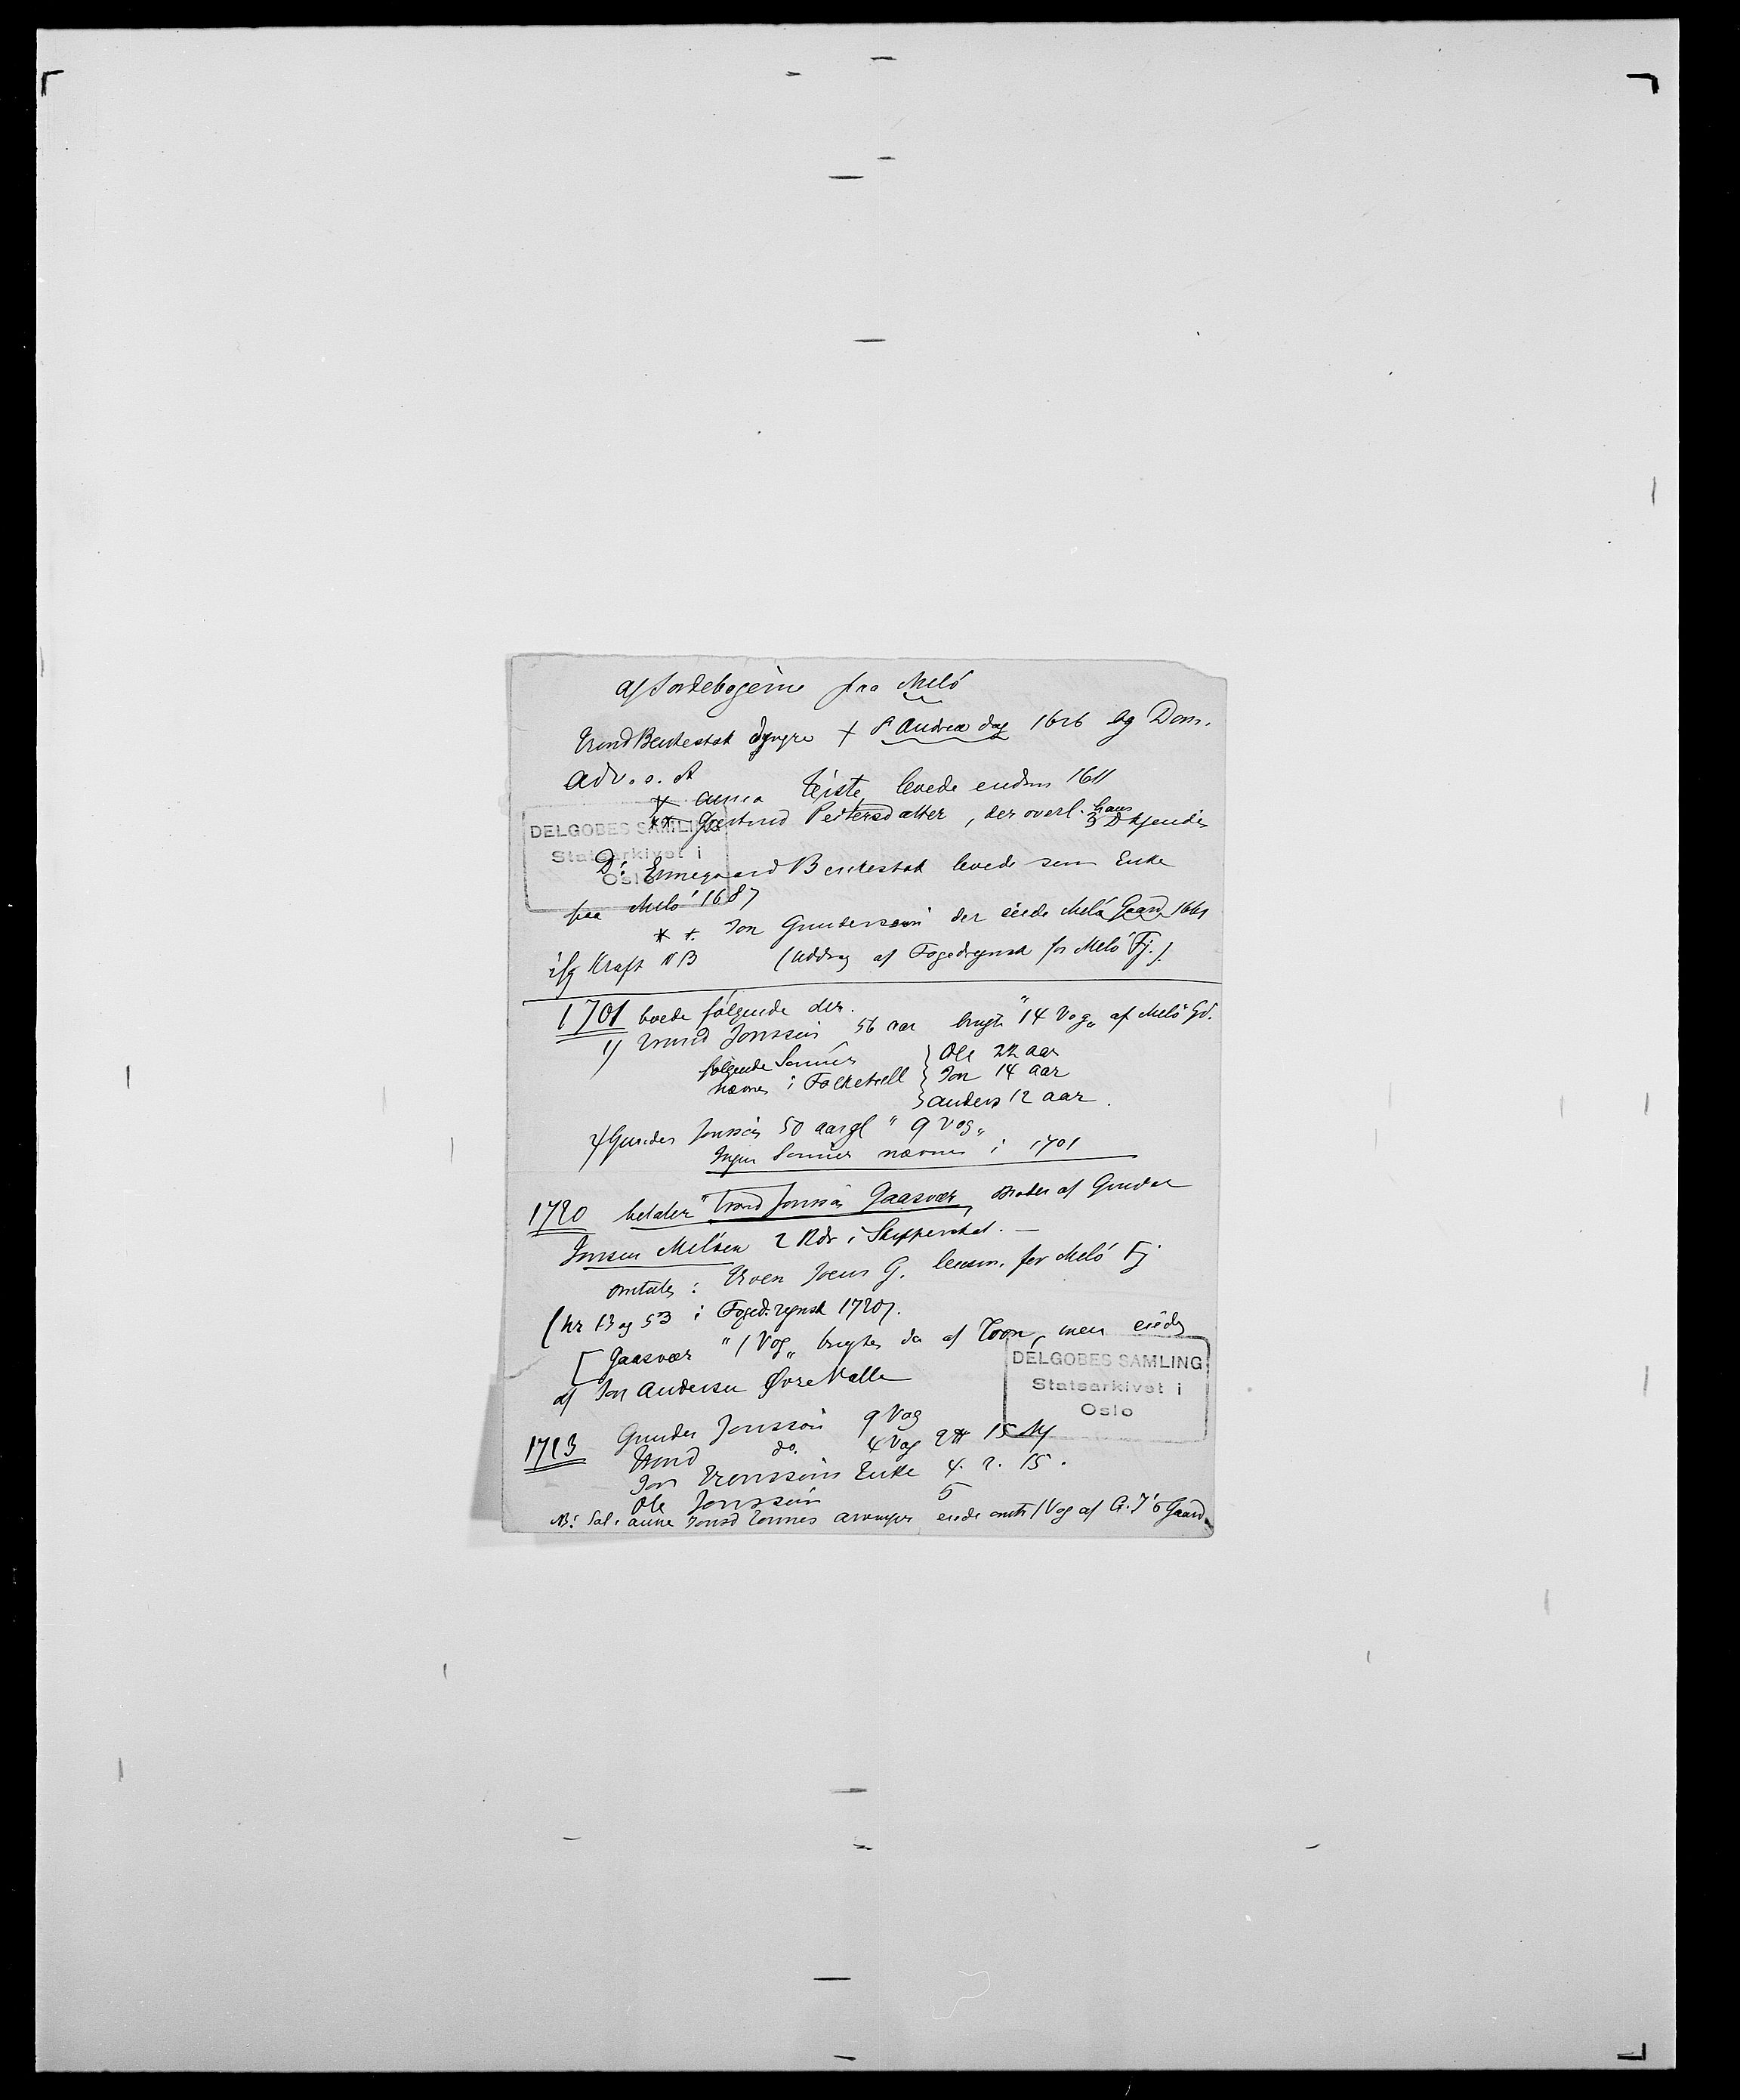 af Jordebogerne fra Melö
Trond Benkestok dyngre + St Andreæ dag 1626 og Dom.
Adv. o. A
* Anna Teiste levede endnu 1611
** Gertrud Peitersdatter, der overl. hans 3 D kjendes
DELGOBES SAMLING
Statsarkivet i
Oslo
D: Ermegaard Benkestok levede som Enke
paa Melö 1687
* +. Jon Gunderssön der eiede Melö Gaard 1661
ifg Kraft NB (Uddrag af Fogedregnsk for Melö Fj.).
1701 boede følgende der.
1) Trond Jonssön 56 aar brugte "14 Vog" af Melö Gd.
følgende Sønner Ole 22 aar
nævnes i Folketæll Jon 14 aar
Anders 12 aar.
2) Gunder Jonssön 50 aargl "9 Vog"
Ingen Sönner nævnes i 1701
1720 betaler "Trond Jonssön Gaasvær, Broder af Gunder
Jonsen Melöen 2 Rdr i Skipperskat. —
omtales: Troen Joens G. lensm. for Melö Fj
(nr 13 og 53 i Foged.regnsk 1720).
[Gaasvær "1 Vog" brugtes da af Troon, men eiedes
af Jon Andersen Øvre Valle
DELGOBES SAMLING
Statsarkivet i
Oslo
1713 Gunder Jonssön 9 Vog
Trond do. 4 Vog 2 15
Jon Tronssöns Enke 4. 2. 15.
Ole Jonssön 5
NB: Sal. Anne Jonsd Tonnes arvinger eiede 1 Vog af G. J's Gaard.